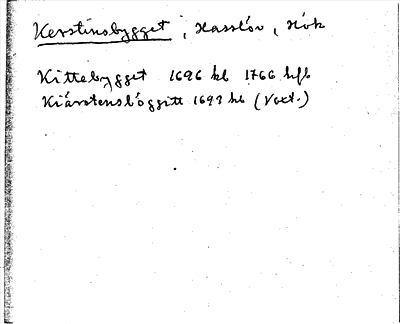 Kerstinsbygget, Hasslöv, Hök
Kittebygget 1696 kb 1766 hfb
Kiärstensböggitt 1693 kb (Voxt.)